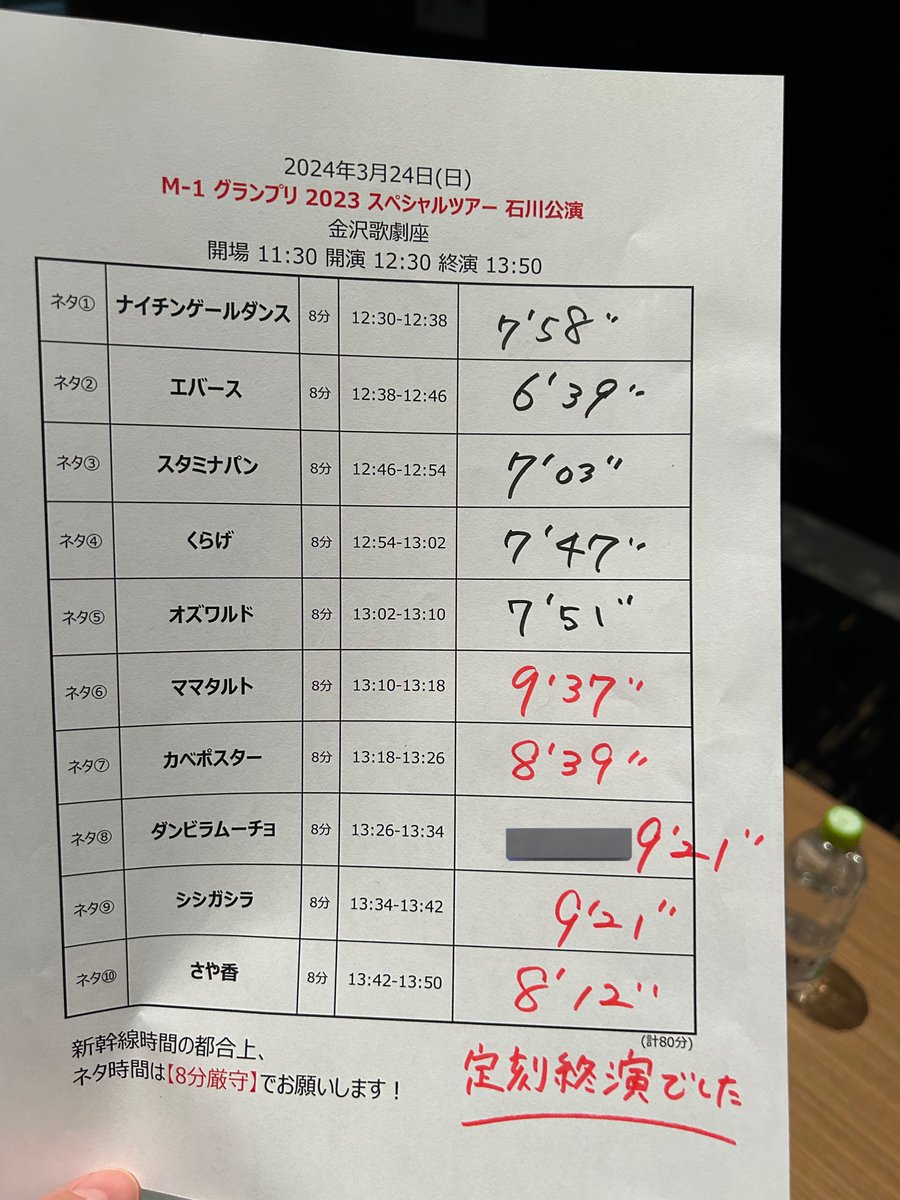 2024年3月24日(日)
M-1 グランプリ 2023 スペシャルツアー 石川公演
金沢歌劇座
開場 11:30 開演 12:30 終演 13:50
ネタ① ナイチンゲールダンス 8分 12:30-12:38 7'58"
ネタ② エバース 8分 12:38-12:46 6'39"
ネタ③ スタミナパン 8分 12:46-12:54 7'03"
ネタ④ くらげ 8分 12:54-13:02 7'47"
ネタ⑤ オズワルド 8分 13:02-13:10 7'51"
ネタ⑥ ママタルト 8分 13:10-13:18 9'37"
ネタ⑦ カベポスター 8分 13:18-13:26 8'39"
ネタ⑧ ダンビラムーチョ 8分 13:26-13:34 9'21"
ネタ⑨ シシガシラ 8分 13:34-13:42 9'21"
ネタ⑩ さや香 8分 13:42-13:50 8'12"
(計80分)
新幹線時間の都合上、
ネタ時間は【8分厳守】でお願いします！
定刻終演でした